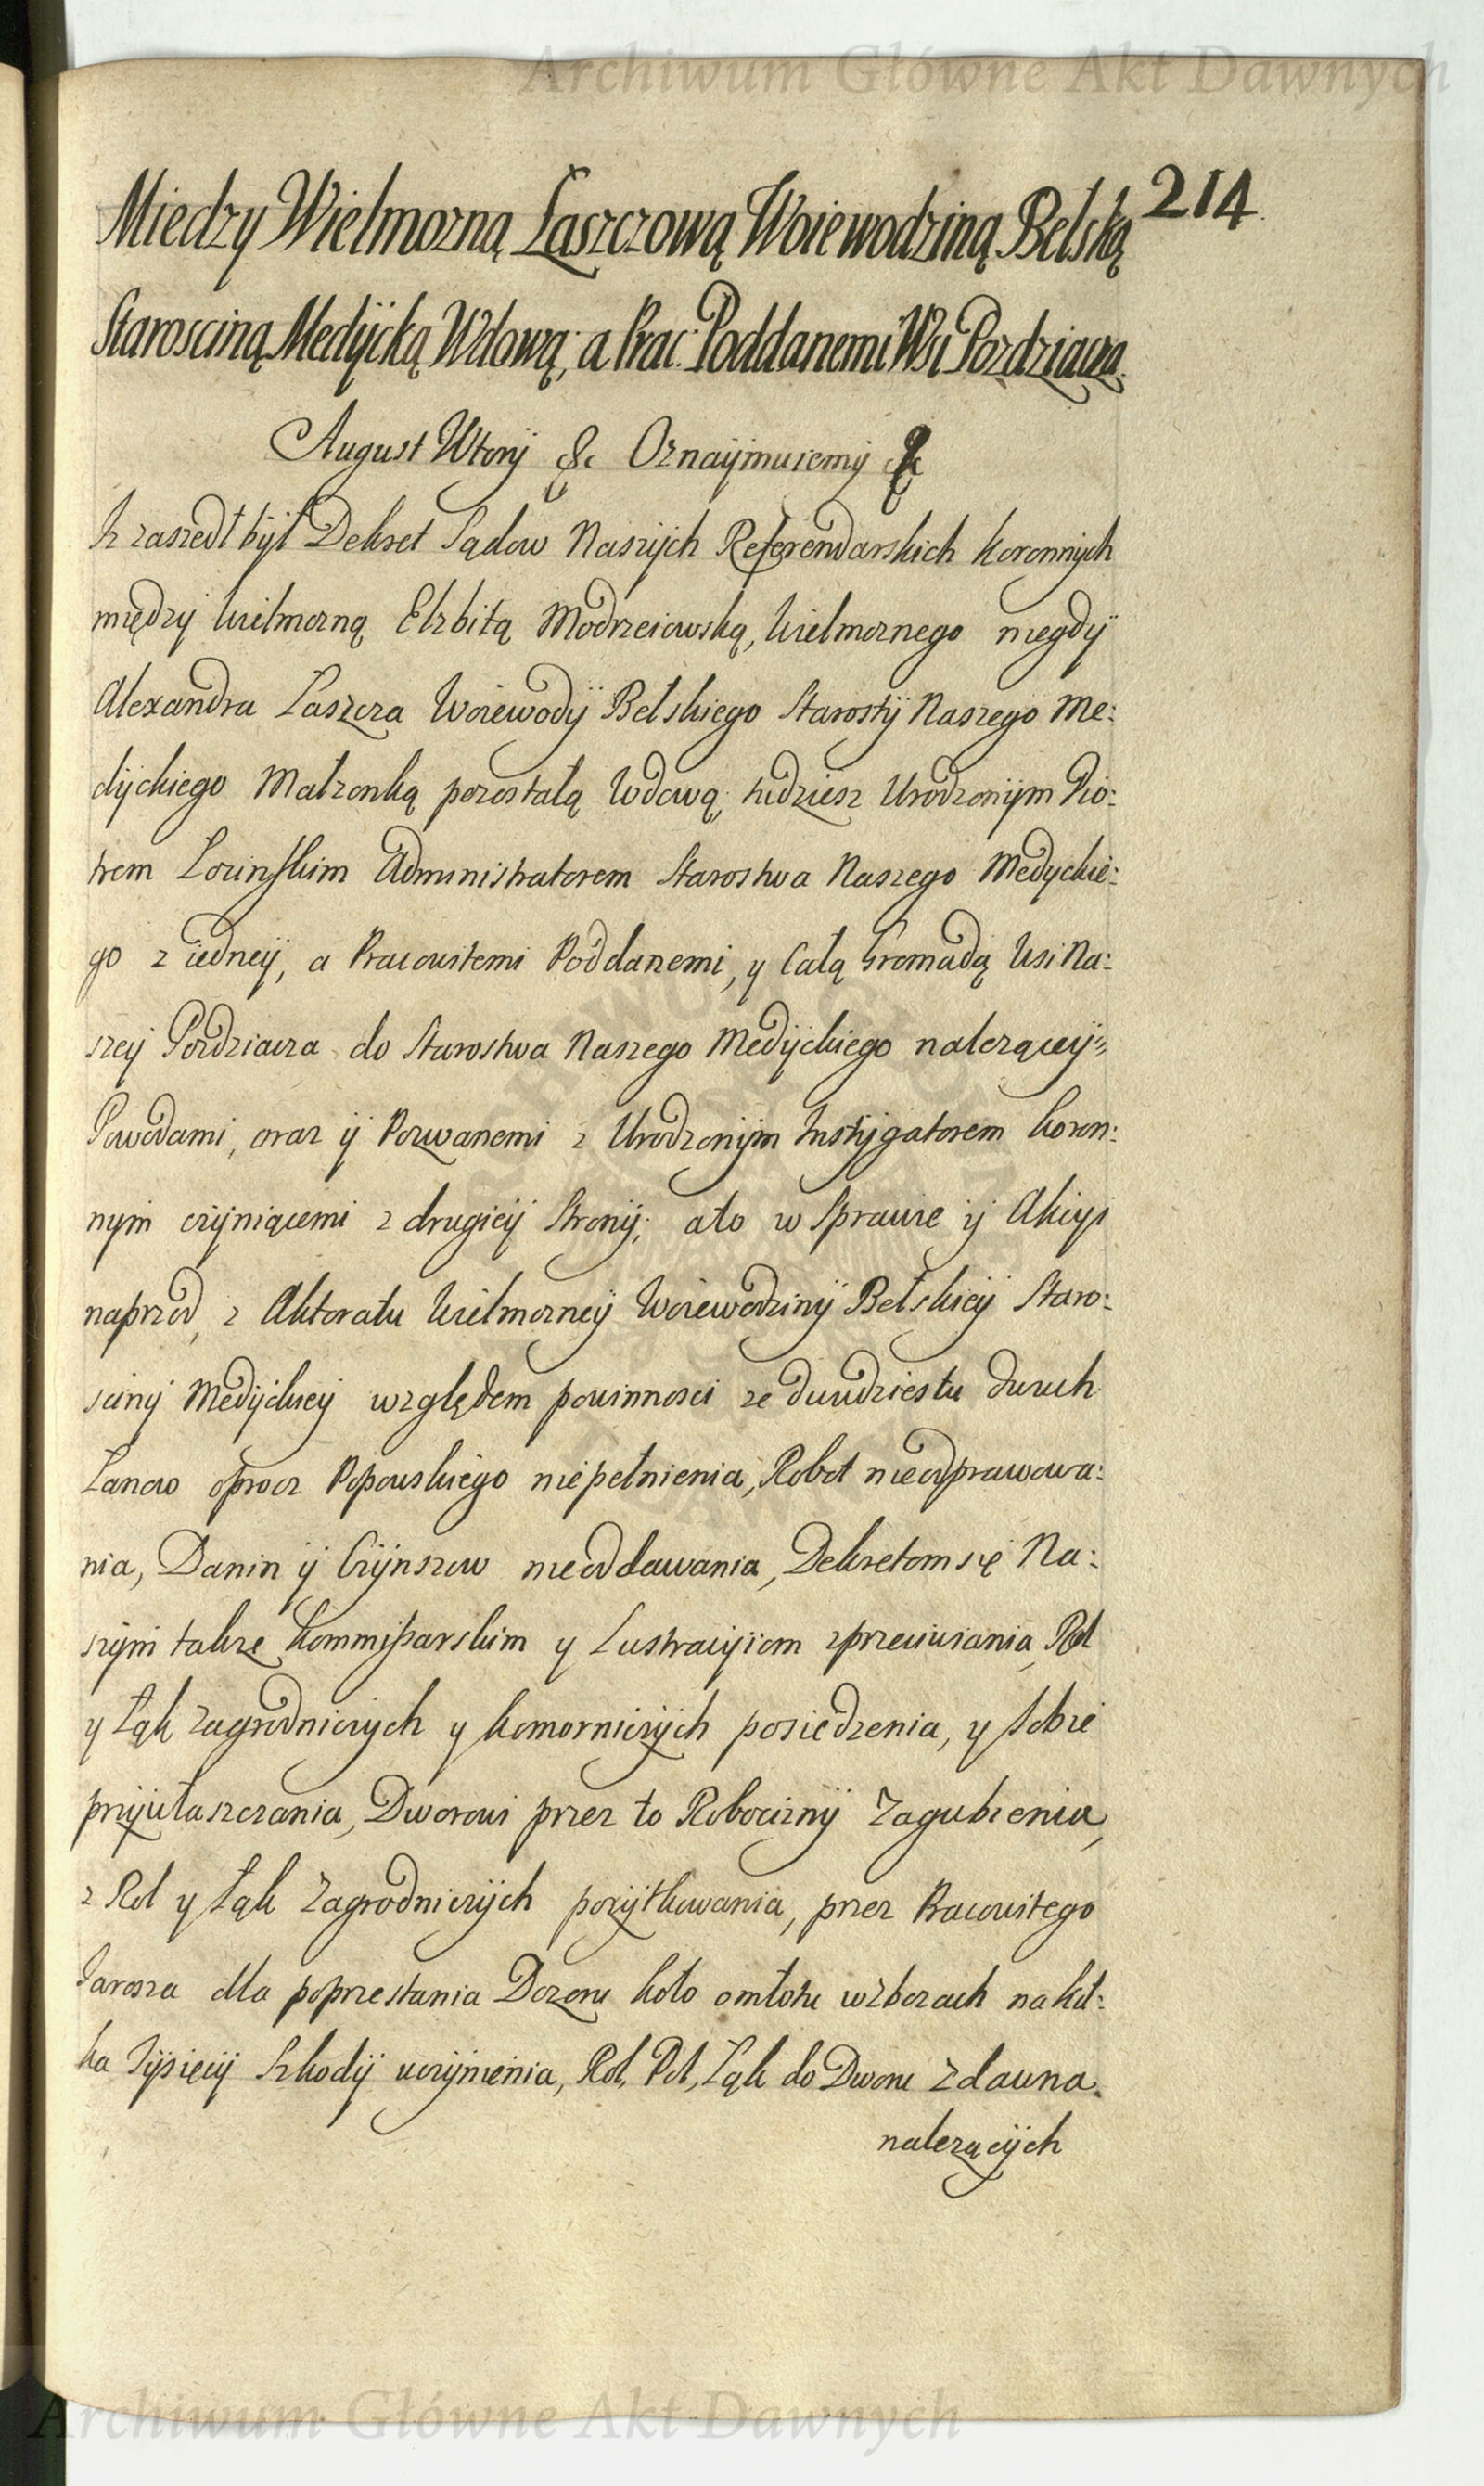 Archiwum Główne Akt Dawnych
214
Miedzy Wielmozną Łaszczową Woiewodziną Bełską
Starosciną Medÿcką Wdową, a Prac: Poddanemi Wsi Pozdziacza
August Wtorÿ &c Oznaÿmuiemÿ &c
Iz zaszedł bÿł Dekret Sądow Naszÿch Referendarskich Koronnÿch
międzÿ Wielmozną Elzbitą Modrzeiowską, Wielmoznego niegdÿ
Alexandra Łaszcza Woiewodÿ Bełskiego Starostÿ Naszego Me:
dÿckiego Małzonką pozostałą Wdową, tudziesz Urodzonÿm Pio:
trem Administratorem Starostwa Naszego Medyckie:
go z iedneÿ, a Pracowitemi Poddanemi, y Całą Gromadą Wsi Na:
szeÿ Pozdziacza do Starostwa Naszego Medÿckiego naleząceÿ
Powodami, oraz ÿ Pozwanemi z Urodzonÿm Instÿgatorem Koron:
nÿm czÿniącemi z drugieÿ Stronÿ; ato w Sprawie ÿ Akcÿi
naprzod, z Aktoratu Wielmozneÿ Woiewodzinÿ Bełskieÿ Staro:
scinÿ Medÿckieÿ względem powinnosci ze dwudziestu dwuch
Łanow oprocz Popowskiego niepełnienia, Robot nieodprawowa:
nia, Danin ÿ Czÿnszow nieoddawania, Dekretom się Na:
szÿm takze Kommissarskim y Lustracÿiom zprzeciwiania, Rol
y Łąk Zagrodniczych y Komorniczÿch posiedzenia, y Sobie
przÿwłaszczania, Dworowi przez to Robociznÿ Zagubienia,
z Rol y Łąk Zagrodniczÿch pozÿtkowania, przez Pracowitego
Jarosza dla poprzestania Dozoru koło omłotu wzbozach na kil:
ka Tÿsięcÿ Szkodÿ uczÿnienia, Rol, Pol, Łąk do Dworu Zdawna
nalezącÿch
Archiwum Główne Akt Dawnych